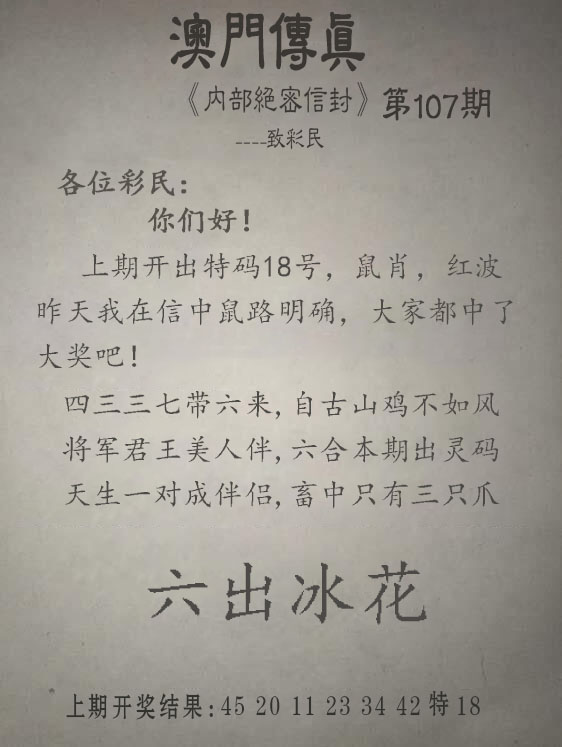 澳門傳真
《内部絕密信封》第107期
----致彩民
各位彩民：
你们好！
上期开出特码18号，鼠肖，红波
昨天我在信中鼠路明确，大家都中了
大奖吧！
四三三七带六来,自古山鸡不如风
将军君王美人伴,六合本期出灵码
天生一对成伴侣,畜中只有三只爪
六出冰花
上期开奖结果：45 20 11 23 34 42 特 18